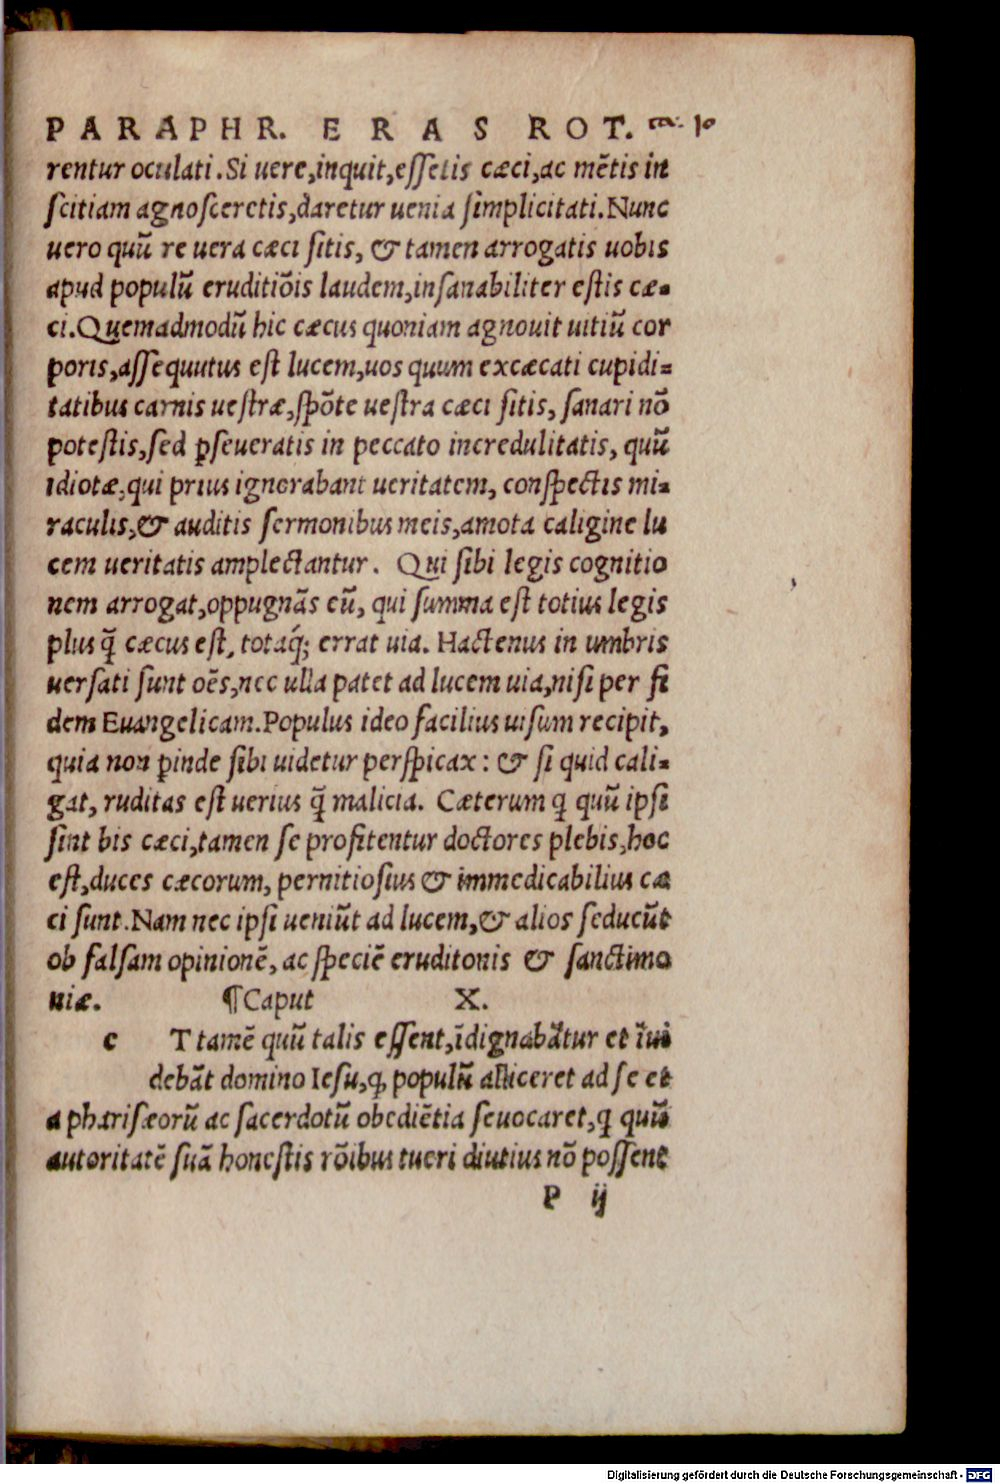 PARAPHR. ERAS ROT. ca. 10
rentur oculati. Si uere, inquit, eſſetis cæci, ac mẽtis in
ſcitiam agnoſceretis, daretur uenia ſimplicitati. Nunc
uero quũ re uera cæci ſitis, & tamen arrogatis uobis
apud populũ eruditiõis laudem, inſanabiliter eſtis cæ-
ci. Quemadmodũ hic cæcus quoniam agnouit uitiũ cor
poris, aſſequutus eſt lucem, uos quum excæcati cupidi-
tatibus carnis ueſtræ, ſpõte ueſtra cæci ſitis, ſanari nõ
poteſtis, ſed ꝑſeueratis in peccato incredulitatis, quũ
idiotæ, qui prius ignorabant ueritatem, conſpectis mi-
raculis, & auditis ſermonibus meis, amota caligine lu
cem ueritatis amplectantur. Qui ſibi legis cognitio
nem arrogat, oppugnãs eũ, qui ſumma eſt totius legis
plus q̃ cæcus eſt, totaq́; errat uia. Hactenus in umbris
uerſati ſunt oẽs, nec ulla patet ad lucem uia, niſi per fi
dem Euangelicam. Populus ideo facilius uiſum recipit,
quia non ꝑinde ſibi uidetur perſpicax: & ſi quid cali-
gat, ruditas eſt uerius q̃ malicia. Cæterum ꝗ quũ ipſi
ſint bis cæci, tamen ſe profitentur doctores plebis, hoc
eſt, duces cæcorum, pernitioſius & immedicabilius cæ
ci ſunt. Nam nec ipſi ueniũt ad lucem, & alios ſeducũt
ob falſam opinionẽ, ac ſpeciẽ eruditonis & ſanctimo
niæ. ¶Caput X.
c T tamẽ quũ talis eſſent, ĩdignabãtur et ĩui
debãt domino Ieſu, ꝙ populũ alliceret ad ſe et
a phariſæorũ ac ſacerdotũ obediẽtia ſeuocaret, ꝗ quũ
autoritatẽ ſuã honeſtis rõibus tueri diutius nõ poſſent
P ij
Digitalisierung gefördert durch die Deutsche Forschungsgemeinschaft - DFG